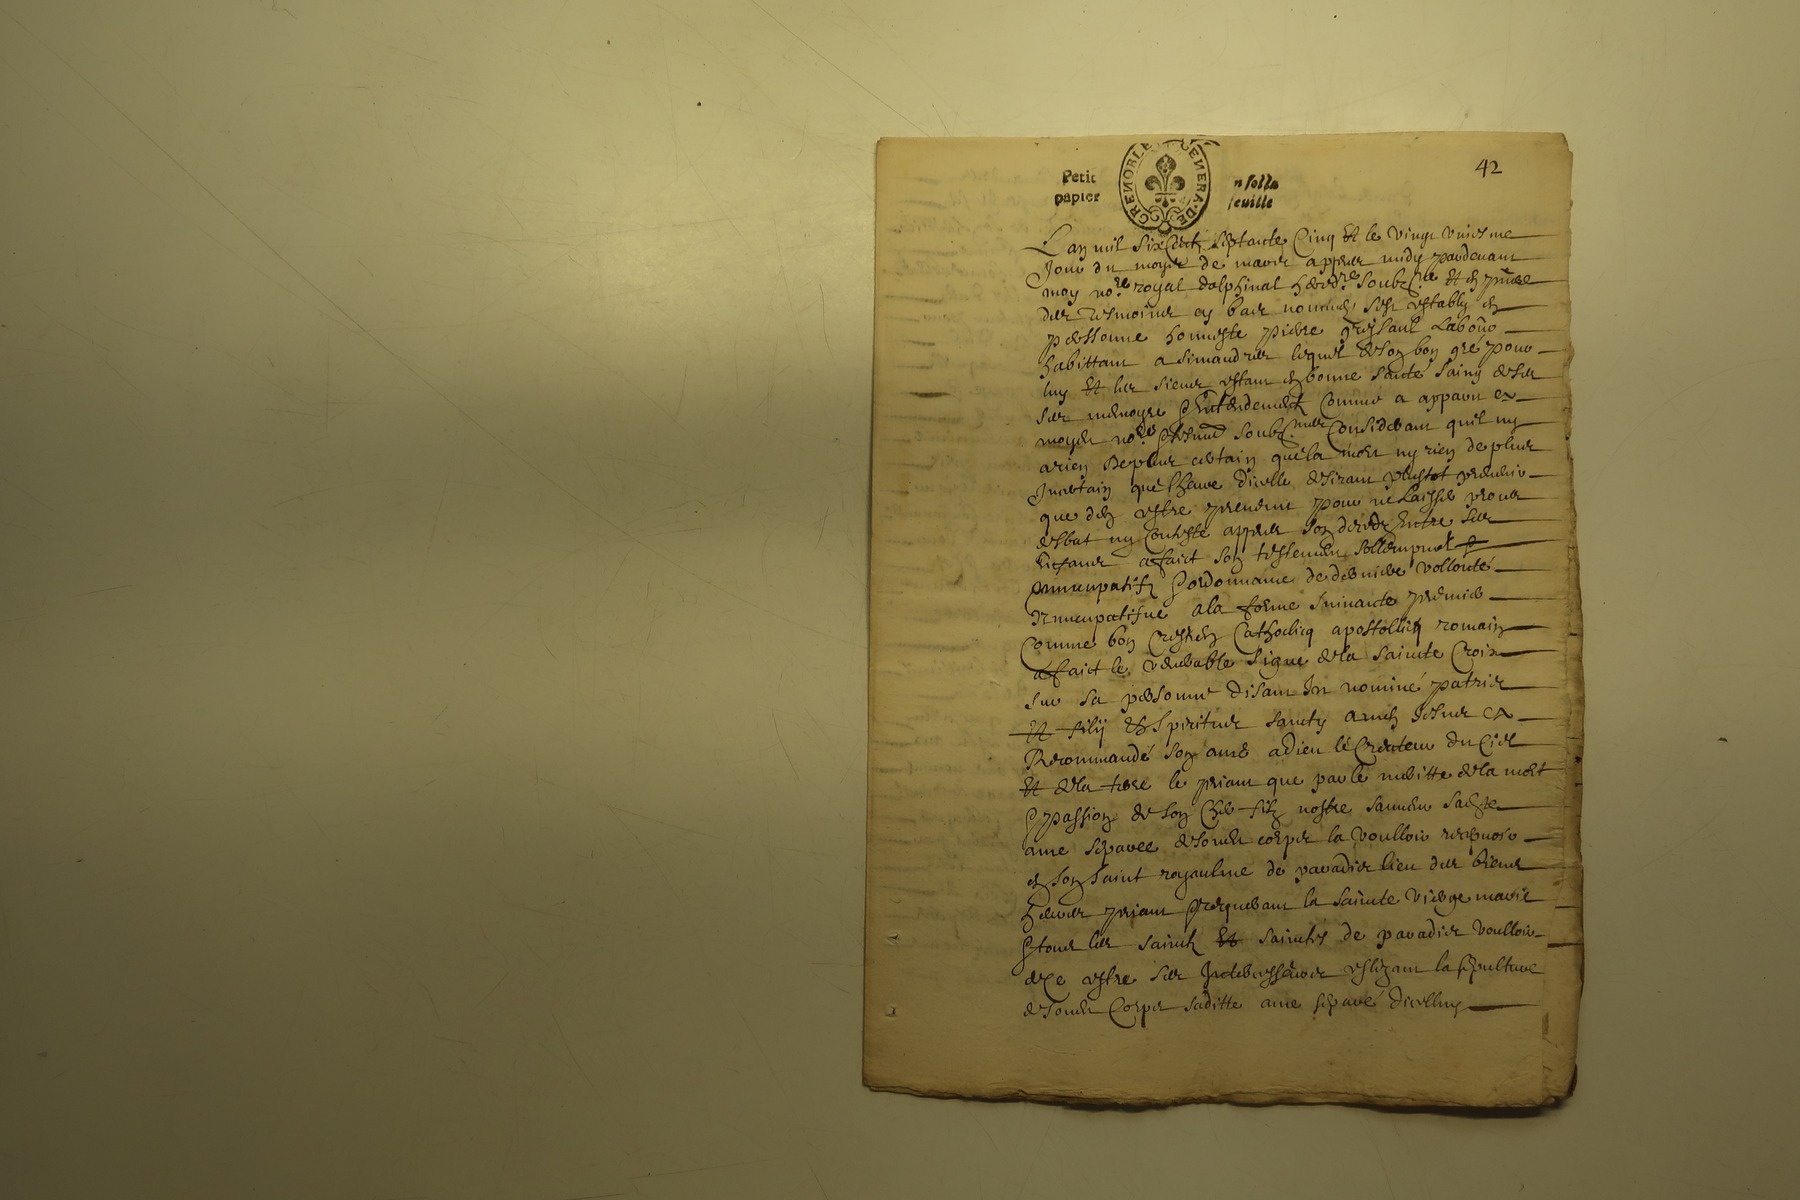 42
Petit papier
GRENOBLE GENERA. DE
n folle feuille
Lan mil six cent septante cinq Et le vingt uniesme
Jour du moys de mars appres midy pardevant
moy no.re royal dalphinal hered.re soubz.né Et en pñce
des tesmoins cy bas nommés sest estably en
personne honneste pierre laboũr
habittant a simandres lequel de son bon gré pour
luy Et les siens estant en bonne santé sains de ses
ses memoyre & entendement comme a apparu a
moyd no.re & tesmoins soubz.nés Considerant quil ny
a rien de plus certain que la mort ny rien de plus
Incertain que lheure dicelle desirant plustot prevenir
que den estre prevenu pour ne laisser proces
desbat ny conteste appres son deceds Entre ses
Enfans a faict son testement sollempnel &
nuncupatif & ordonnance de derniere vollonté
nuncupatifve a la forme suivante premier
Comme bon crestien Catholicq apostollicq romain
a faict le venerable signe de la sainte Croix
sur sa personne disant In nominé patris
Et filij & spiritus sancty amen Jesus a
Recommandé son ame a dieu le Createur du Ciel
Et de la terre le priant que par le meritte de la mort
& passion de son cher filz nostre sauveur sadite
ame séparee de sondt corps la voulloir recepvoir
en son saint royaulme de paradis lieu des biens
heureus priant & requerant la sainte vierge marie
& tous les saints Et saintes de paradis voulloir
de Ce estre ses Intercesseurs eslizant la sepulture
de sondt Corps saditte ame separé dicelluy